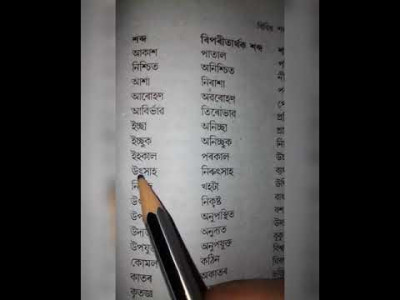 বিবিধ
শব্দ বিপৰীতাৰ্থক শব্দ
আকাশ পাতাল
নিশ্চিত অনিশ্চিত
আশা নিৰাশা
আৰোহণ অৱৰোহণ
আবিৰ্ভাৱ তিৰোভাৱ
ইচ্ছা অনিচ্ছা
ইচ্ছুক অনিচ্ছুক
ইহকাল পৰকাল
উৎসাহ নিৰুৎসাহ
খহটা
নিকৃষ্ট
অনুপস্থিত
অনুদ্যত
অনুপযুক্ত
কোমল কঠিন
কাতৰ অকাতৰ
কৃতজ্ঞ